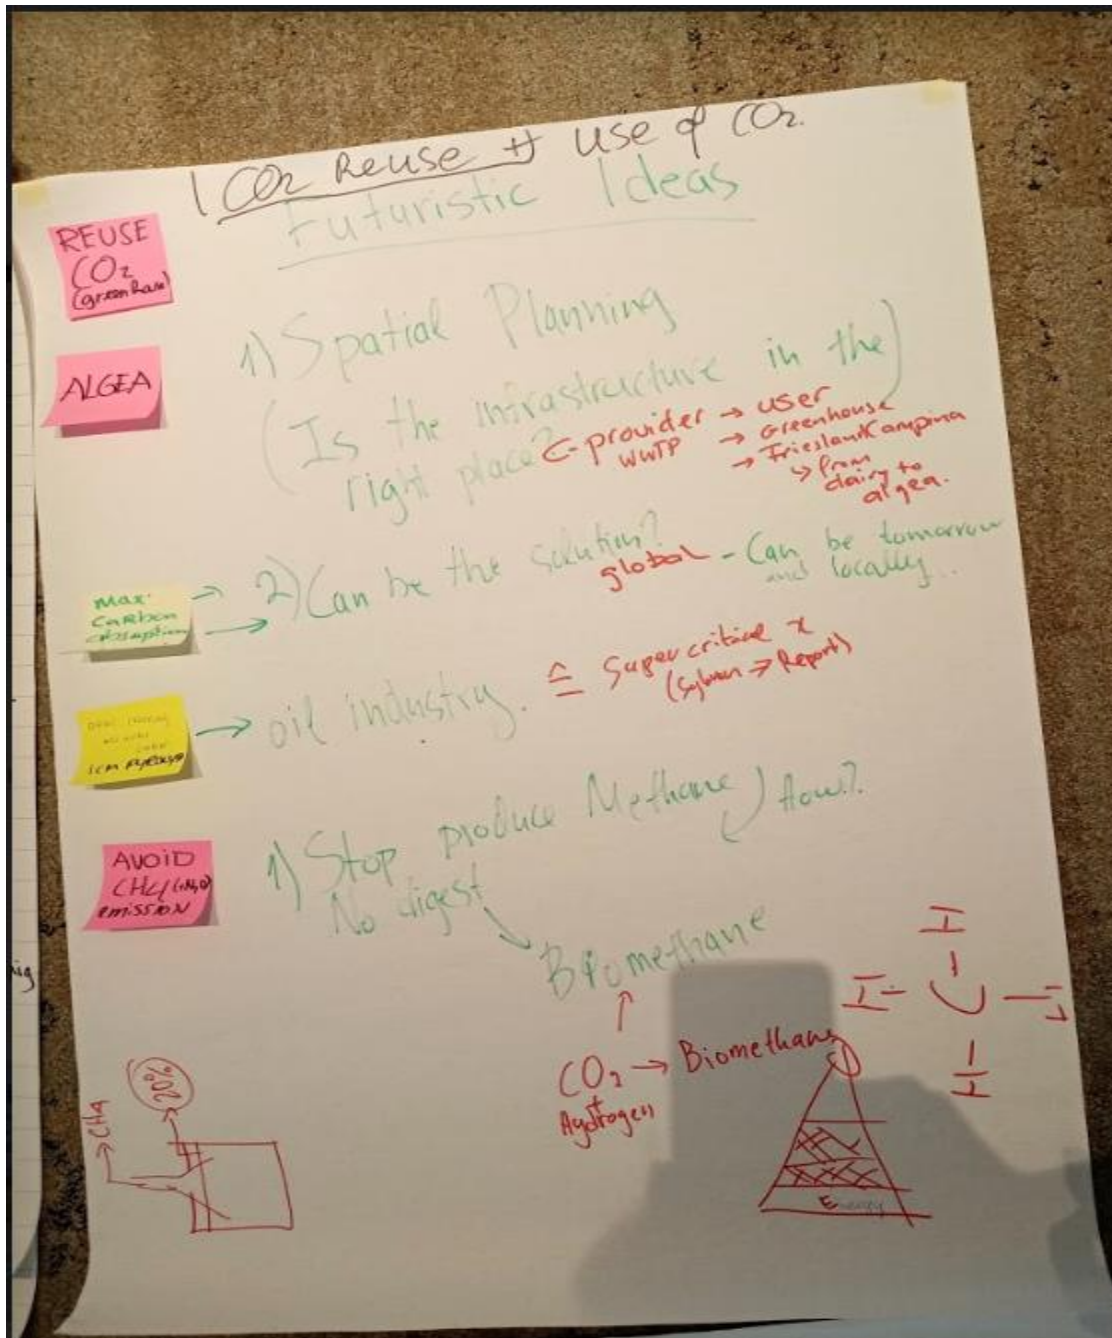 1 CO2 Reuse + Use of CO2.
Futuristic Ideas
REUSE
CO2
(greenhouse)
ALGEA
1) Spatial Planning
(Is the infrastructure in the
right place?)
C-provider → user
WWTP → Greenhouse
→ FrieslandCampina
↳ from
dairy to
algea.
Max.
Carbon
absorption
2) Can be the solution?
global - Can be tomorrow
and locally..
→ oil industry.
≙ Supercritical
(Sybren → Report)
AVOID
CH4 (+N2O)
EMISSION
1) Stop produce Methane) How?
No digest
Biomethane
CO2 → Biomethane
+
Hydrogen
H
H - C - H
H
CH4
20%
Energy